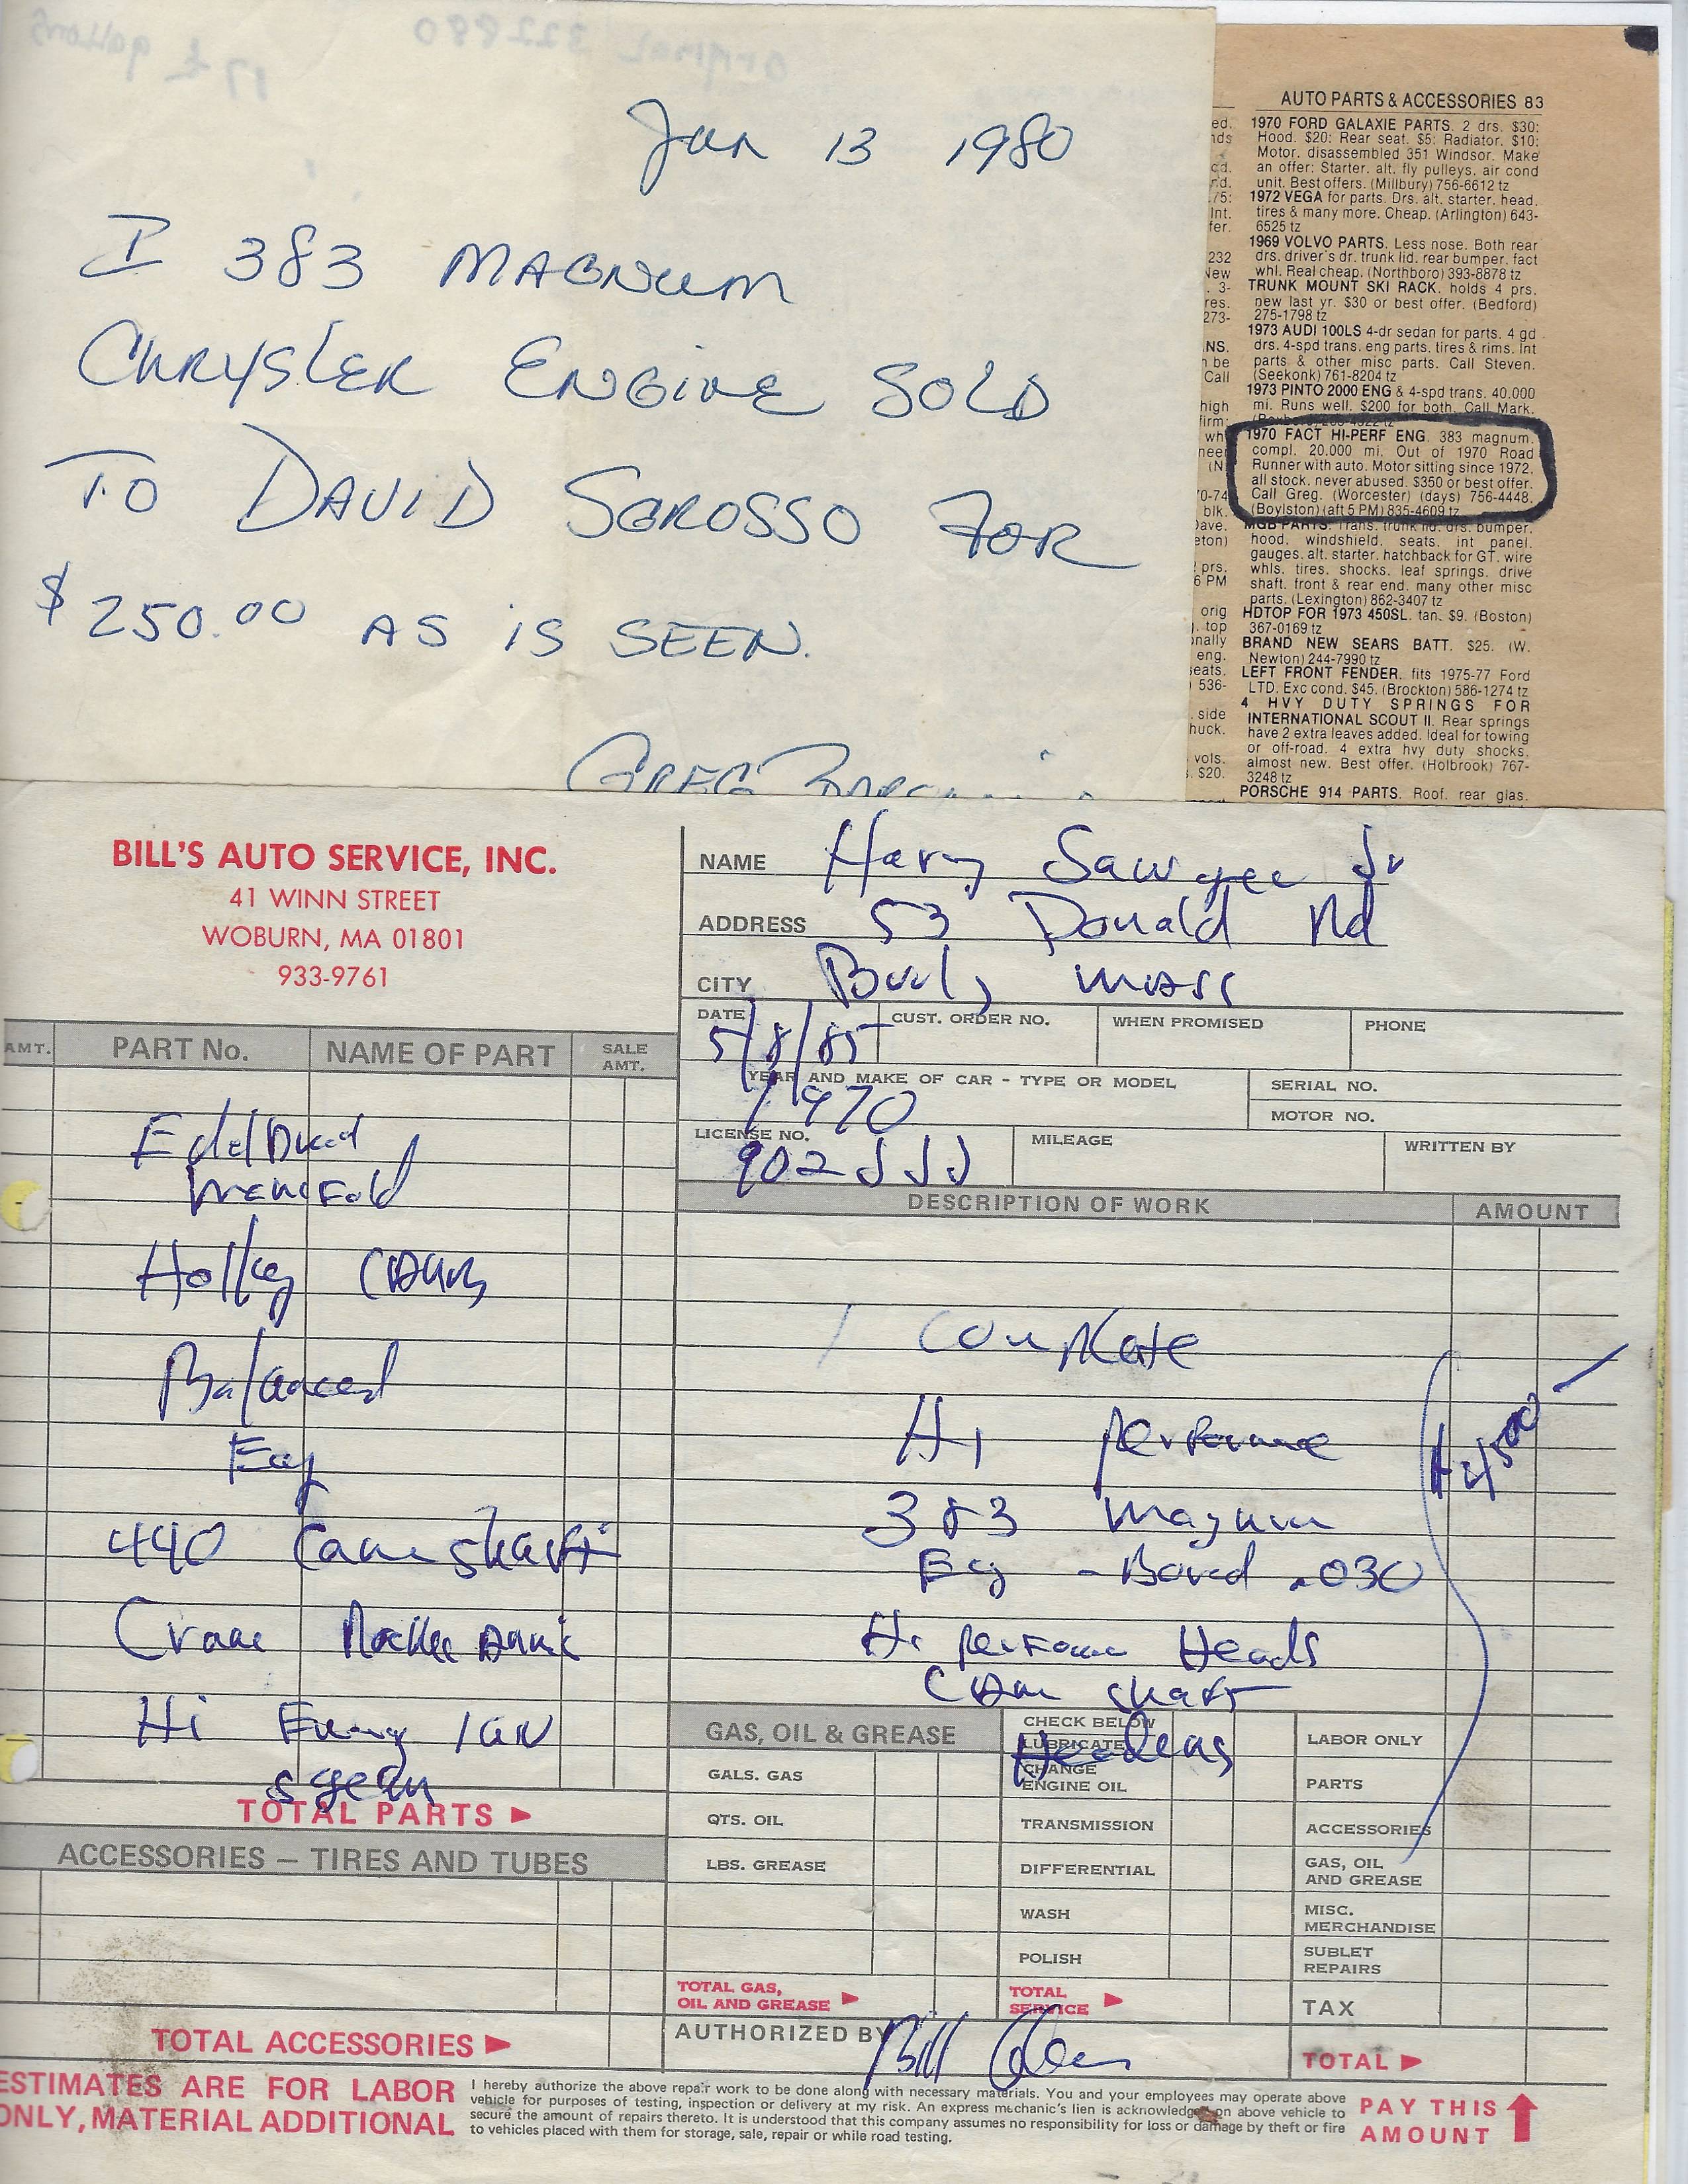 Jan 13 1980
I 383 MAGNUM
CHRYSLER ENGINE SOLD
TO DAVID SGROSSO FOR
$250.00 AS IS SEEN.
GREG
AUTO PARTS & ACCESSORIES 83
1970 FORD GALAXIE PARTS. 2 drs. $30;
Hood. $20; Rear seat. $5; Radiator. $10;
Motor. disassembled 351 Windsor. Make
an offer; Starter. alt. fly pulleys. air cond
unit. Best offers. (Millbury) 756-6612 tz
1972 VEGA for parts. Drs. alt. starter. head.
tires & many more. Cheap. (Arlington) 643-
6525 tz
1969 VOLVO PARTS. Less nose. Both rear
drs. driver's dr. trunk lid. rear bumper. fact
whl. Real cheap. (Northboro) 393-8878 tz
TRUNK MOUNT SKI RACK. holds 4 prs.
new last yr. $30 or best offer. (Bedford)
275-1798 tz
1973 AUDI 100LS 4-dr sedan for parts. 4 gd
drs. 4-spd trans. eng parts. tires & rims. Int
parts & other misc parts. Call Steven.
(Seekonk) 761-8204 tz
1973 PINTO 2000 ENG & 4-spd trans. 40,000
mi. Runs well. $200 for both. Call Mark.
1970 FACT HI-PERF ENG. 383 magnum.
compl. 20,000 mi. Out of 1970 Road
Runner with auto. Motor sitting since 1972.
all stock. never abused. $350 or best offer.
Call Greg. (Worcester) (days) 756-4448.
(Boylston) (aft 5 PM) 835-4609 tz
MGB PARTS. Trans. trunk lid. drs. bumper.
hood. windshield. seats. int panel.
gauges. alt. starter. hatchback for GT. wire
whls. tires. shocks. leaf springs. drive
shaft. front & rear end. many other misc
parts. (Lexington) 862-3407 tz
HDTOP FOR 1973 450SL. tan. $9. (Boston)
367-0169 tz
BRAND NEW SEARS BATT. $25. (W.
Newton) 244-7990 tz
LEFT FRONT FENDER. fits 1975-77 Ford
LTD. Exc cond. $45. (Brockton) 586-1274 tz
4 HVY DUTY SPRINGS FOR
INTERNATIONAL SCOUT II. Rear springs
have 2 extra leaves added. Ideal for towing
or off-road. 4 extra hvy duty shocks.
almost new. Best offer. (Holbrook) 767-
3248 tz
PORSCHE 914 PARTS. Roof. rear glas.
BILL'S AUTO SERVICE, INC.
41 WINN STREET
WOBURN, MA 01801
933-9761
NAME Harry Sawyer Jr
ADDRESS 53 Donald Rd
CITY Burl, Mass
DATE 5/8/85 CUST. ORDER NO. WHEN PROMISED PHONE
YEAR AND MAKE OF CAR - TYPE OR MODEL 1970
SERIAL NO.
MOTOR NO.
LICENSE NO. 902 JJJ MILEAGE WRITTEN BY
AMT. PART No. NAME OF PART SALE AMT.
Manifold
Holley
Balanced
Eng
440 Camshaft
Crane Rocker
Hi
DESCRIPTION OF WORK AMOUNT
Complete
Hi Performance
383 Magnum
Eng - Bored .030
Hi Performance Heads
Cam shaft
Headers
TOTAL PARTS ►
ACCESSORIES — TIRES AND TUBES
TOTAL ACCESSORIES ►
GAS, OIL & GREASE
GALS. GAS
QTS. OIL
LBS. GREASE
TOTAL GAS,
OIL AND GREASE ►
CHECK BELOW
LUBRICATE
CHANGE
ENGINE OIL
TRANSMISSION
DIFFERENTIAL
WASH
POLISH
TOTAL
SERVICE ►
LABOR ONLY
PARTS
ACCESSORIES
GAS, OIL
AND GREASE
MISC.
MERCHANDISE
SUBLET
REPAIRS
TAX
TOTAL ►
AUTHORIZED BY Bill
ESTIMATES ARE FOR LABOR
ONLY, MATERIAL ADDITIONAL
I hereby authorize the above repair work to be done along with necessary materials. You and your employees may operate above
vehicle for purposes of testing, inspection or delivery at my risk. An express mechanic's lien is acknowledged on above vehicle to
secure the amount of repairs thereto. It is understood that this company assumes no responsibility for loss or damage by theft or fire
to vehicles placed with them for storage, sale, repair or while road testing.
PAY THIS
AMOUNT